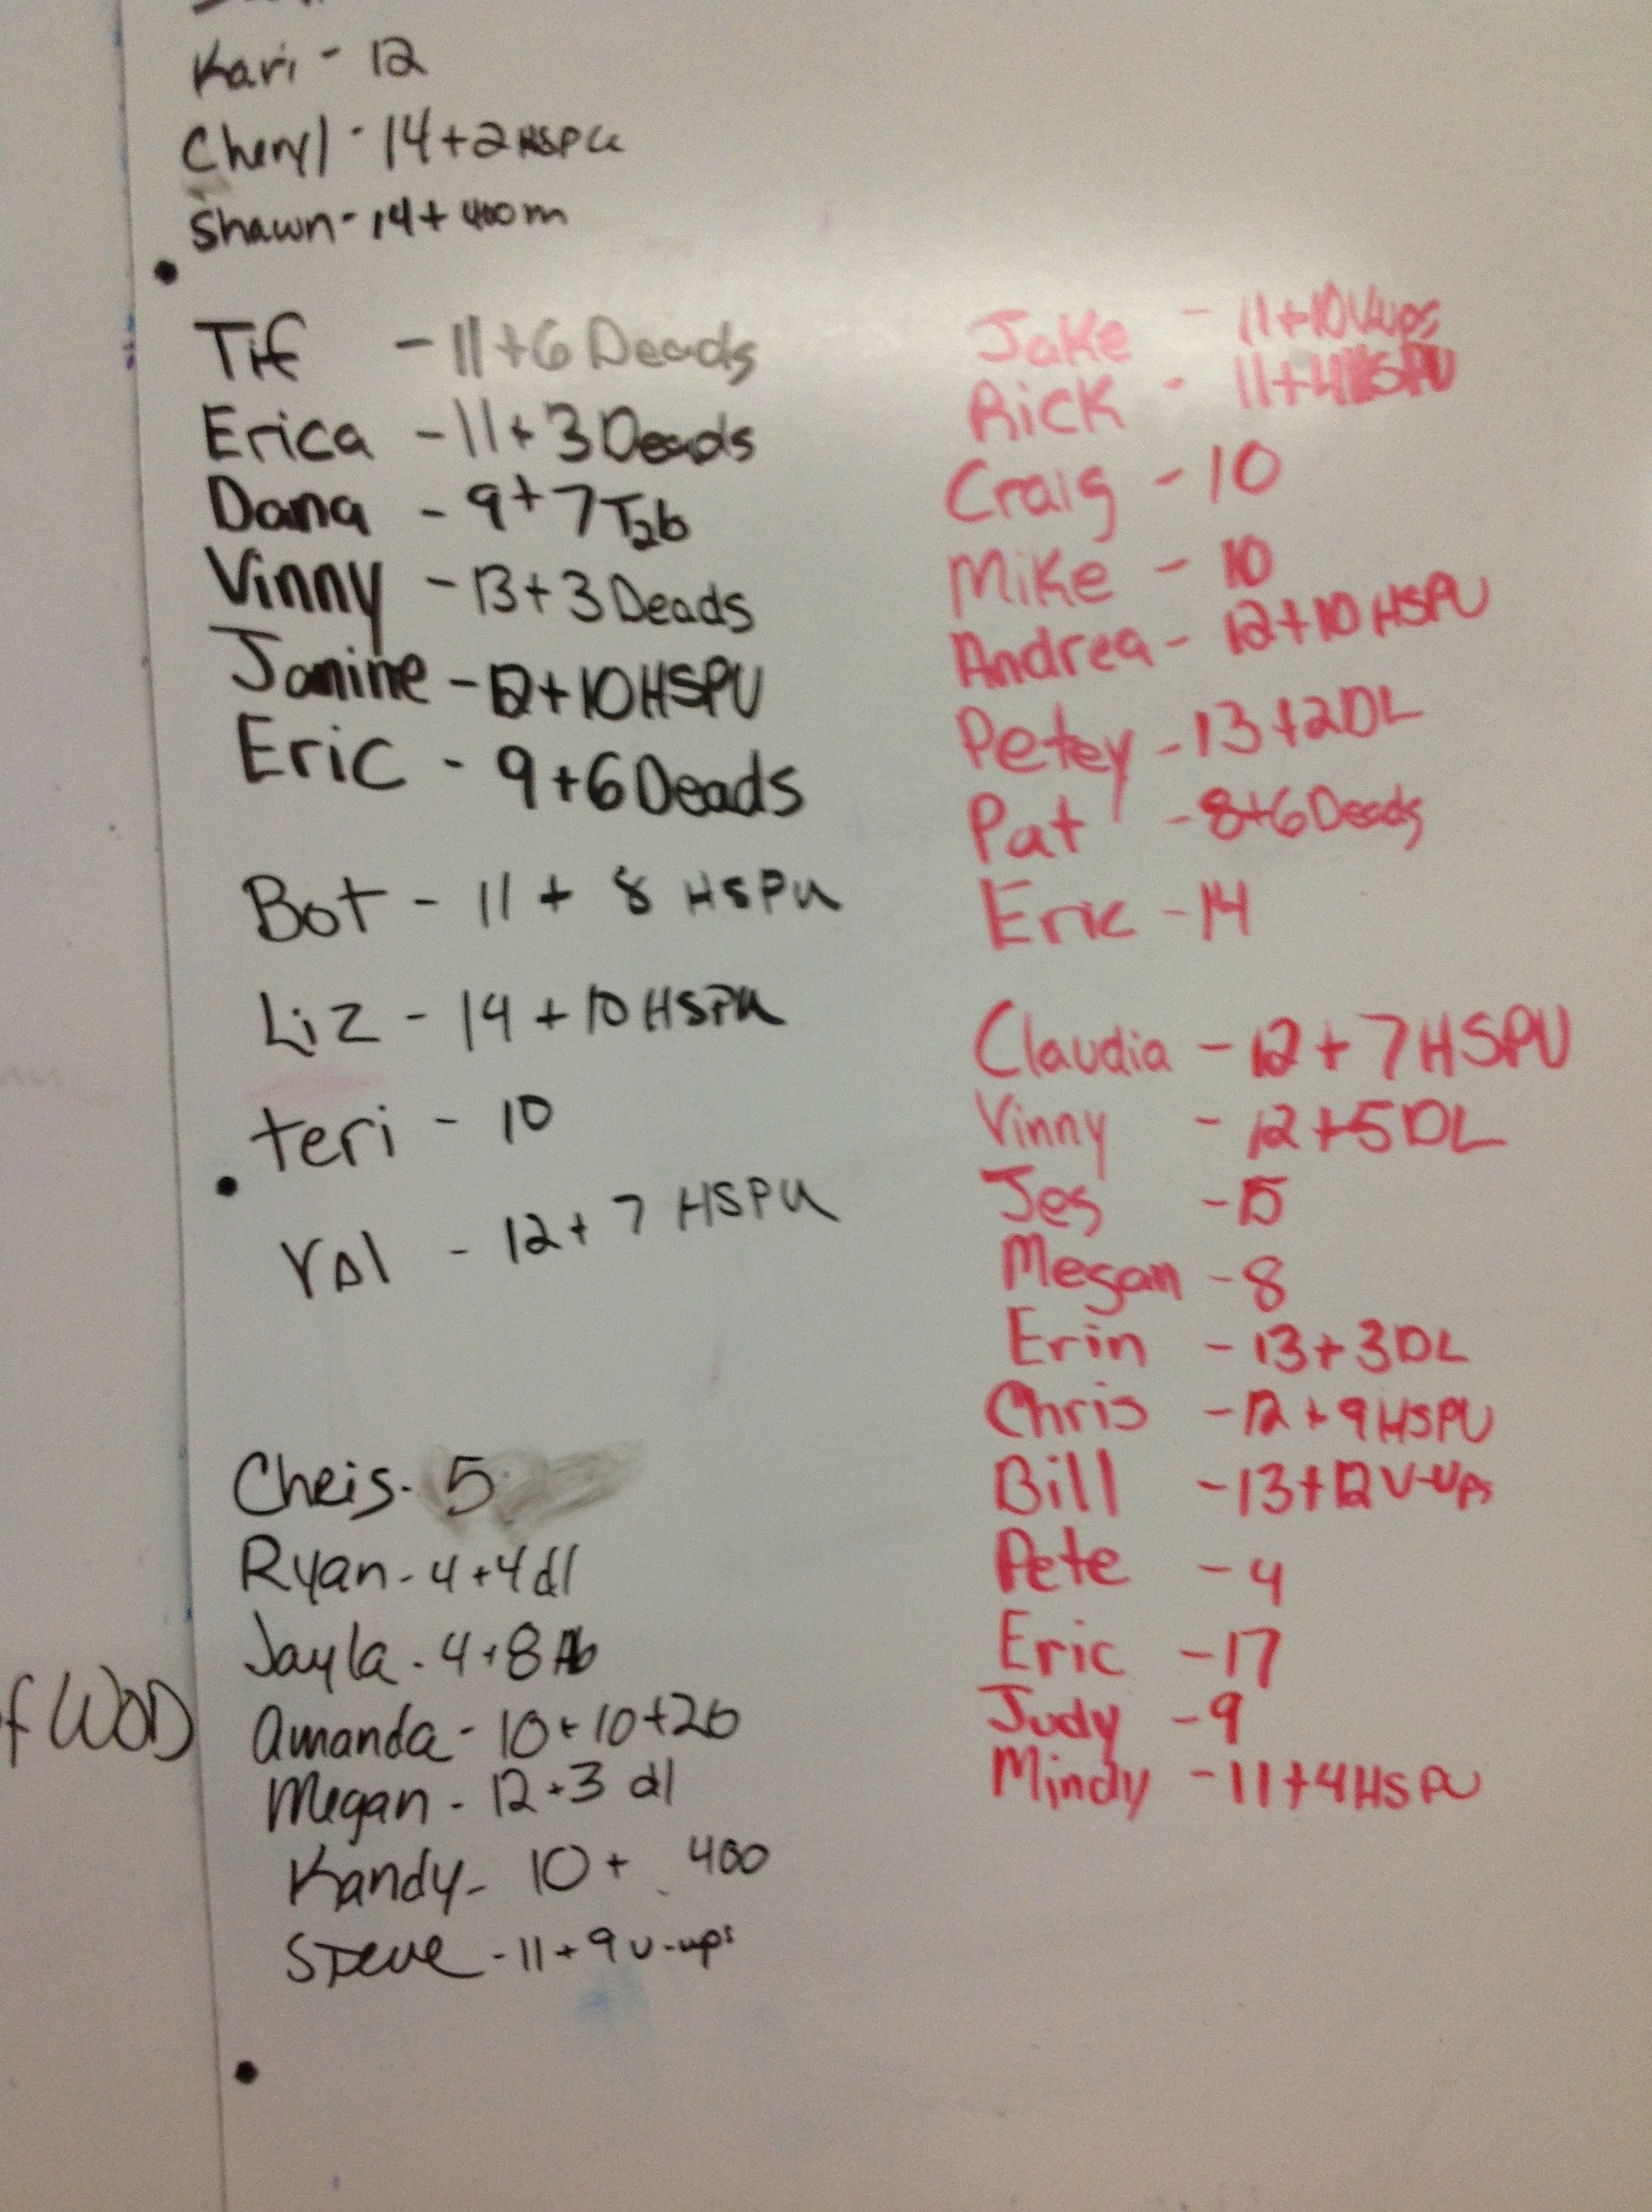 Kari - 12
Cheryl - 14+2 HSPU
Shawn - 14+400m
Tif - 11+6 Deads
Erica - 11+3 Deads
Dana - 9+7 T2b
Vinny - 13+3 Deads
Janine - 12+10 HSPU
Eric - 9+6 Deads
Bot - 11 + 8 HSPU
Liz - 14 + 10 HSPU
teri - 10
Val - 12+ 7 HSPU
Chris - 5
Ryan - 4+4 dl
Jayla - 4+8
Amanda - 10+10+26
Megan - 12+3 dl
Kandy - 10+ 400
Steve - 11+9 v-ups
f WOD
Jake - 11+10 V-ups
Rick - 11+4 HSPU
Craig - 10
Mike - 10
Andrea - 12+10 HSPU
Petey - 13+2DL
Pat - 8+6 Deads
Eric - 14
Claudia - 12+7 HSPU
Vinny - 12+5 DL
Jes - 15
Megan - 8
Erin - 13+3 DL
Chris - 12+9 HSPU
Bill - 13+12 V-ups
Pete - 4
Eric - 17
Judy - 9
Mindy - 11+4 HSPU